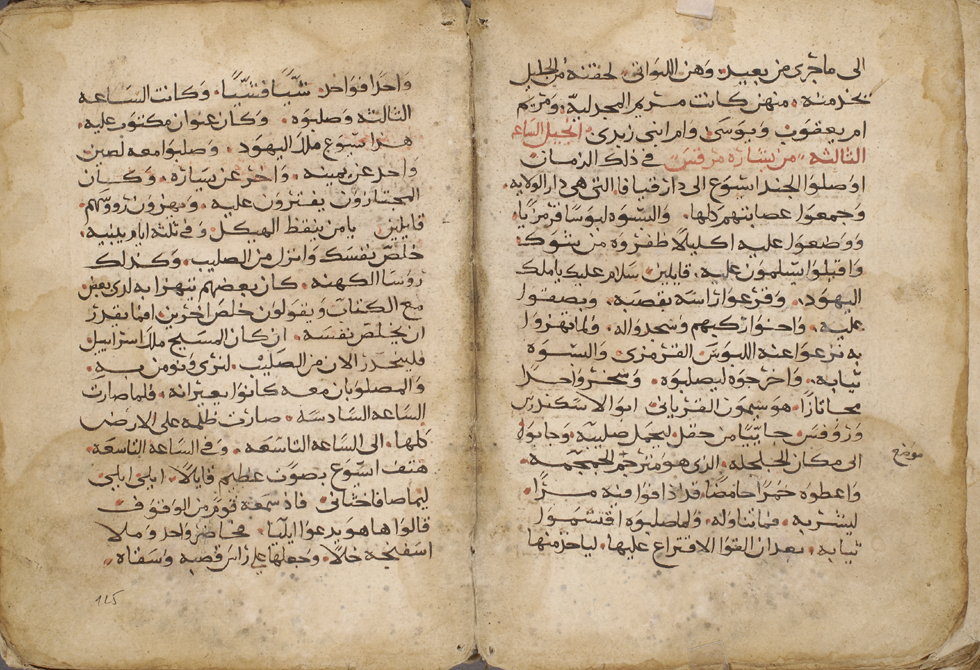 الى ما جرى من بعيد. وهن اللواتى لحقنه من الجليل
لخدمته. منهن كانت مريم المجدلية. ومريم
ام يعقوب ويوسى وام ابنى زبدى. انجيل الساعه
الثالثه من بشاره مرقس فى ذلك الزمان
اوصلوا الجند ايسوع الى دار قيافا التى هى دار الولايه.
وجمعوا عصابتهم كلها. والبسوه لبوسا قرمزيا.
ووضعوا عليه اكليلا ظفروه من شوك.
واقبلوا يسلمون عليه. قايلين سلام عليك يا ملك
اليهود. وقرعوا راسه بقصبه. وبصقوا
عليه. واحنوا ركبهم وسجدوا له. ولما تهزوا
به نزعوا عنه اللبوس القرمزى والبسوه
ثيابه. واخرجوه ليصلبوه. وسخروا واحدا
مجتازا. هو سيمون القريانى ابو الاسكندرس
وروفس جاييا من حقل ليحمل صليبه وجابوه
الى مكان الجلجله. الذى هو مترجم الجمجمه.
موضع
واعطوه خمرا حامضا قد ادافوا فيه مرا
ليشربه. فما تناوله. ولما صلبوه اقتسموا
ثيابه. بعد ان القوا الاقتراع عليها. لياخذ منها
واحدا فواحد شيا فشيا. وكانت الساعه
الثالثه وصلبوه. وكان عنوان مكتوب عليه.
هذا ايسوع ملك اليهود. وصلبوا معه لصين
واحد عن يمينه. واخر عن يساره. وكان
المجتازون يفترون عليه. ويهزون رووسهم.
قايلين يا من ينقظ الهيكل وفى ثلثه ايام يبنيه.
خلص نفسك وانزل من الصليب. وكذلك
روسا الكهنه. كان بعضهم تتهزا به لدى بعض
مع الكتاب ويقولون خلص اخرين افما يقدر
ان يخلص نفسه. ان كان المسيح ملك اسراييل
فلينحدر الان من الصليب. لنرى ونومن به.
والمصلوبان معه كانوا يعيرانه. فلما صارت
الساعه السادسه. صارت ظلمه على الارض
كلها. الى الساعه التاسعه. وفى الساعه التاسعه.
هتف ايسوع بصوت عظيم قايلا. ايلى ايلى
ليما صافاختانى فاذ سمعه قوم من الوقوف
قالوا ها هو يدعوا ايليا. فحاضر واحد وملا
اسفنجه خلا. وجعلها على راس قصبه وسقاه
125